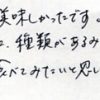 美味しかったです。
、種類があるみ
食べてみたいと思い